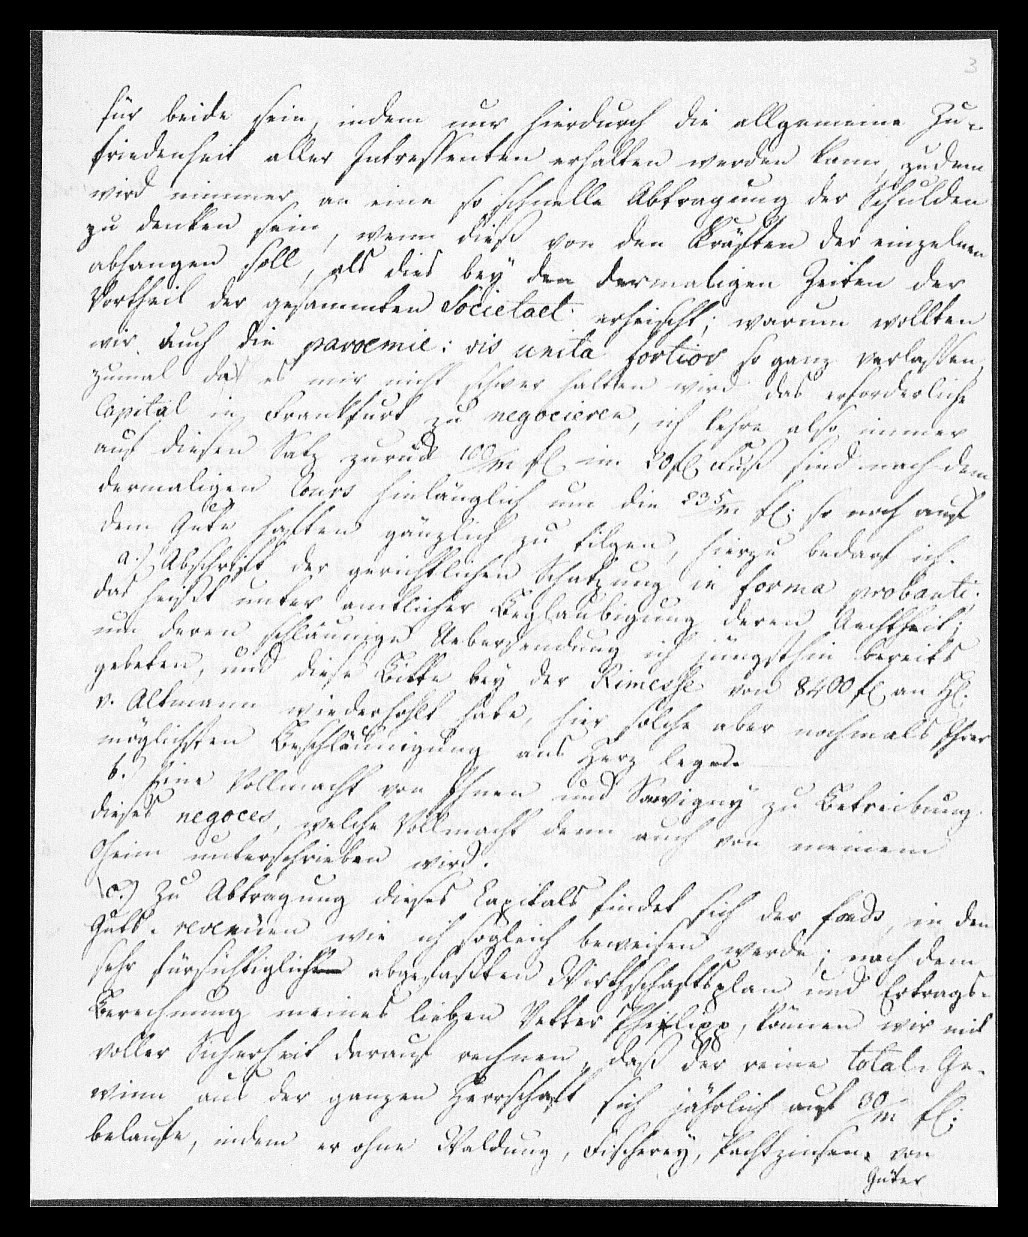 3
für beide sein, indem nur hierdurch die allgemeine Zu-
friedenheit aller Intressenten erhalten werden kann, zudem
wird nimmer an eine so schnelle Abtragung der Schulden
zu denken sein, wenn dieß von den Kräften der einzelnen
abhangen soll, als dies bey den dermaligen Zeiten der
Vortheil der gesammten Societaet erheischt; warum wollten
wir auch die paroemie: vis unita fortior so ganz verlassen,
zumal da es mir nicht schwer halten wird das erforderliche
Capital in Frankfurt zu negocieren, ich kehre also immer
auf diesen Satz zurück 100/m fl im 20 fl Fuß sind nach dem
dermaligen Cours hinlänglich um die 235/m fl: so noch auf
dem Gute haften gänzlich zu tilgen, hierzu bedarf ich.
a.) Abschrift der gerichtlichen Schatzung in forma probanti;
das heißt unter amtlicher Beglaubigung deren Aechtheit;
um deren schläunige Uebersendung ich jüngsthin bereits
gebeten, und diese Bitte bey der Rimesse von 8400 fl an H.
v. Altmann wiederhohlt habe, hier solche aber nochmals Ihrer
möglichsten Beschläunigung ans Herz lege.
b.) Eine Vollmacht von Ihnen und Savigny zu Betreibung
dieses negoces, welche Vollmacht denn auch von meinem
Oheim unterschrieben wird.
c.) Zu Abtragung dieses Capitals findet sich der fonds, in den
Guts-revenüen wie ich sogleich beweisen werde; nach dem
sehr fürsichtiglich abgefaßten Wirthschaftsplan und Ertrags-
Berechnung meines lieben Vetter Philipp, können wir mit
voller Sicherheit darauf rechnen, daß der reine total-Ge-
winn aus der ganzen Herrschaft sich jährlich auf 30/m fl:
belaufe, indem er ohne Waldung, Fischerey, Pachtzinsen von
Güter